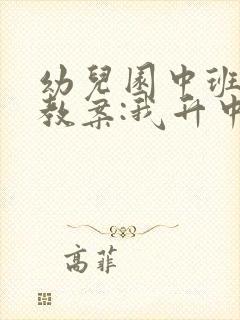 幼兒園中班
教案:我升中
高菲